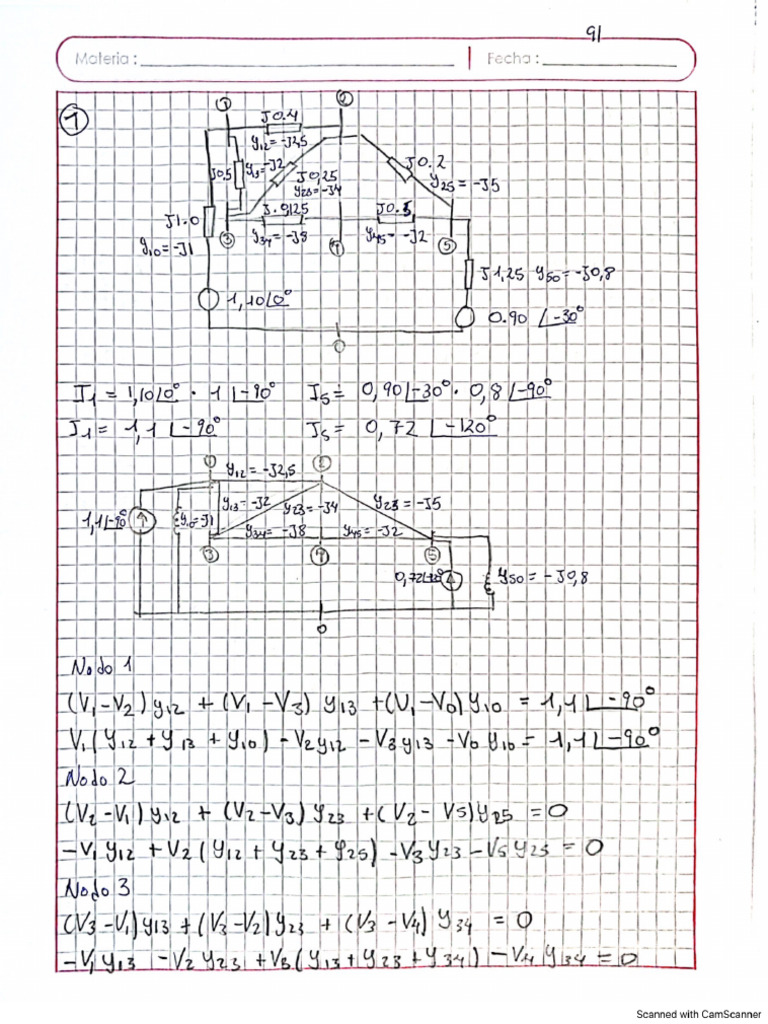 91
Materia : Fecha :
1
1 2
J0.4
y12 = -J2,5
J0,5 y13 = -J2 J0,25 J0.2
y23 = -J4 y25 = -J5
J1.0 J.0125 J0.5
y10 = -J1 3 y34 = -J8 4 y45 = -J2 5
J1,25 y50 = -J0,8
1,10∠0° 0.90 ∠-30°
0
I1 = 1,10∠0° · 1∠-90° I5 = 0,90∠-30° · 0,8∠-90°
I1 = 1,1∠-90° I5 = 0,72 ∠-120°
1 y12 = -J2,5 2
y13 = -J2 y23 = -J4 y23 = -J5
1,1∠-90° y10 = -J1
y34 = -J8 y45 = -J2
3 4 5
y50 = -J0,8
0
Nodo 1
(V1-V2) y12 + (V1-V3) y13 + (V1-V0) y10 = 1,1∠-90°
V1(y12 + y13 + y10) - V2y12 - V3y13 - V0 y10 = 1,1∠-90°
Nodo 2
(V2-V1) y12 + (V2-V3) y23 + (V2-V5) y25 = 0
-V1y12 + V2(y12 + y23 + y25) - V3y23 - V5y25 = 0
Nodo 3
(V3-V1)y13 + (V3-V2)y23 + (V3-V4) y34 = 0
-V1y13 - V2y23 + V3(y13 + y23 + y34) - V4y34 = 0
Scanned with CamScanner